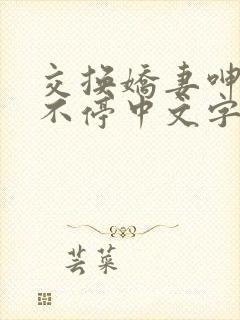 交换嬌妻呻
不停中文字
芸菜